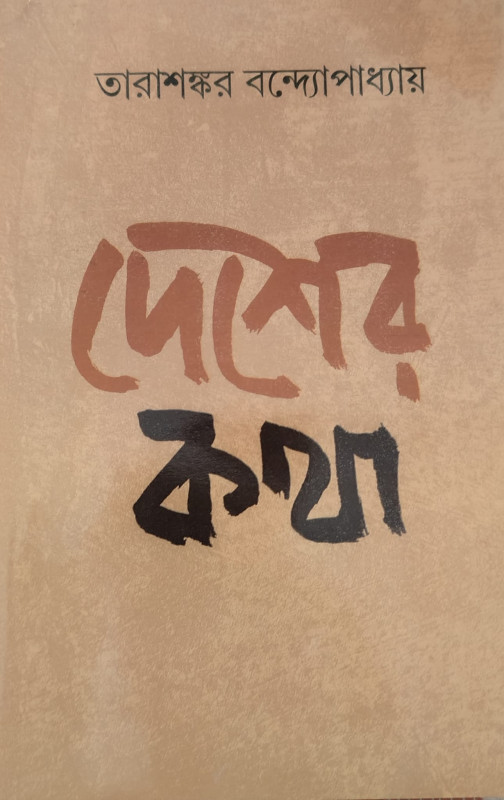 তারাশঙ্কর বন্দ্যোপাধ্যায়
দেশের
কথা